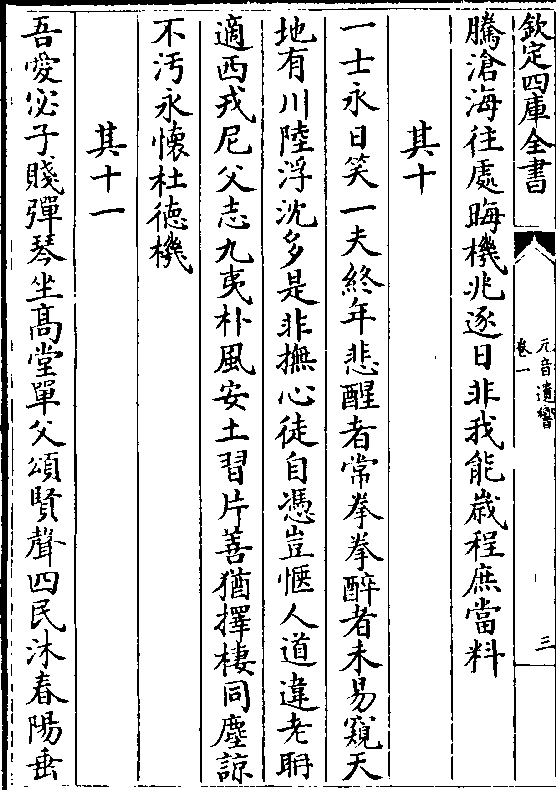 欽定四庫全書
元音遺響
卷一
三
騰滄海往處晦機兆逐日非我能歲程庶當料
其十
一士永日笑一夫終年悲醒者常拳拳醉者未易窺天
地有川陸浮沈多是非撫心徒自憑豈愜人道違老聃
適西戎尼父志九夷朴風安土習片善猶擇棲同塵諒
不汚永懷杜徳機
其十一
吾愛宓子賤彈琴坐髙堂單父頌賢聲四民沐春陽垂